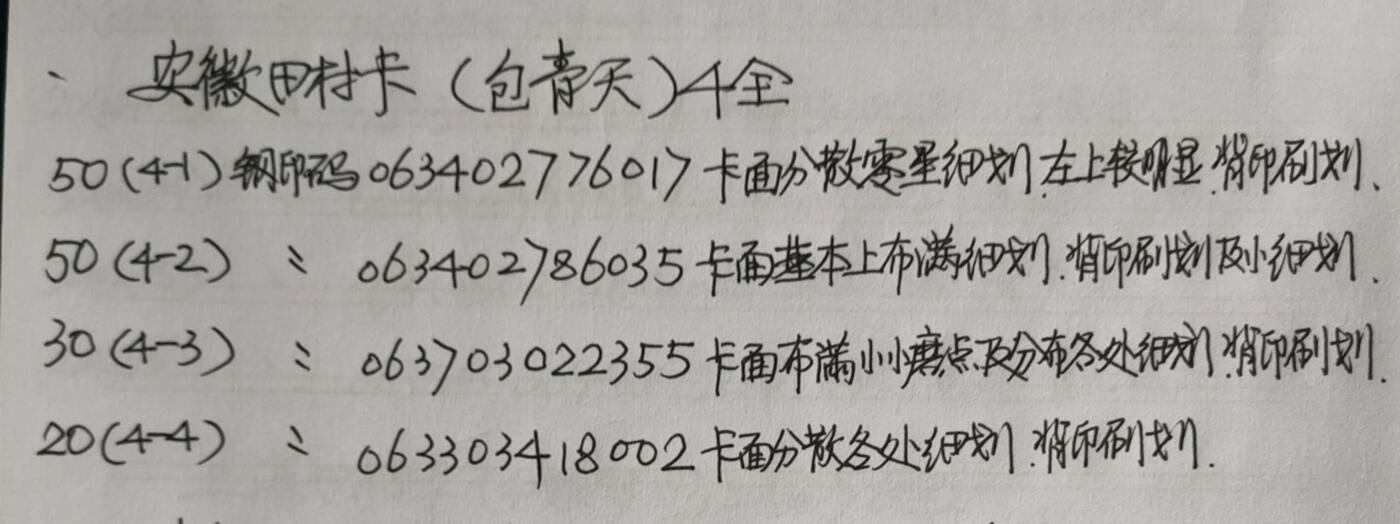 、安徽田村卡（包青天）4全
50（4-1）钢印码063402776017卡面分散零星细划.左上较明显.背印刷划、
50（4-2） 〃 063402786035卡面基本上布满细划.背印刷划及小细划.
30（4-3） 〃 063703022355卡面布满小小磨点及分布各处细划.背印刷划.
20（4-4） 〃 063303418002卡面分散各处细划.背印刷划.